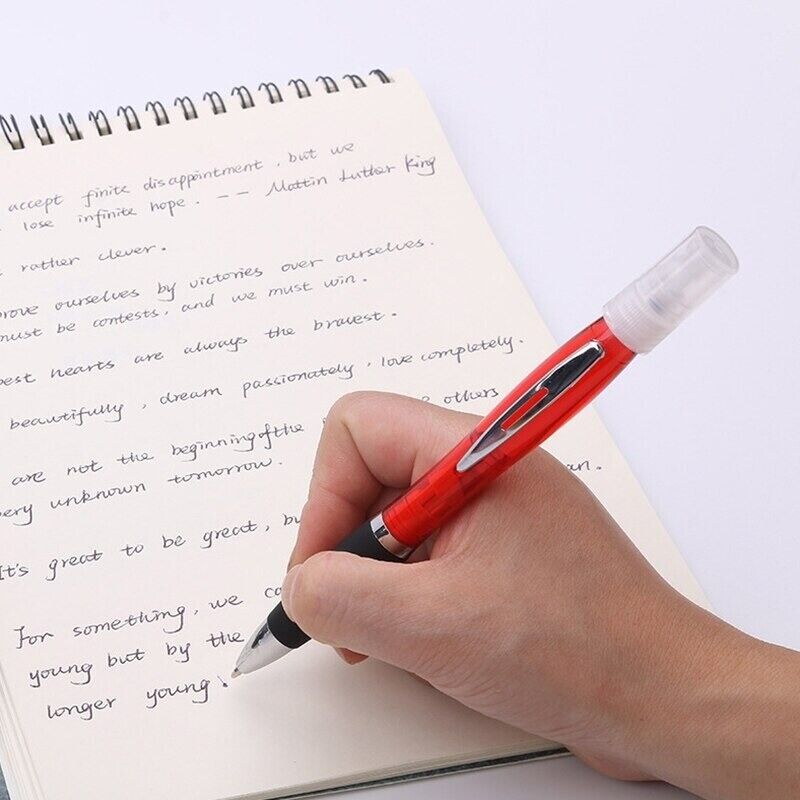 accept finite disappointment, but we
lose infinite hope. -- Mattin Luther King
rather clever.
prove ourselves by victories over ourselves.
must be contests, and we must win.
best hearts are always the bravest.
beautifully, dream passionately, love completely.
are not the beginning of the others
very unknown tomorrow. an.
It's great to be great, bu
For something, we ca
young but by the
longer young.